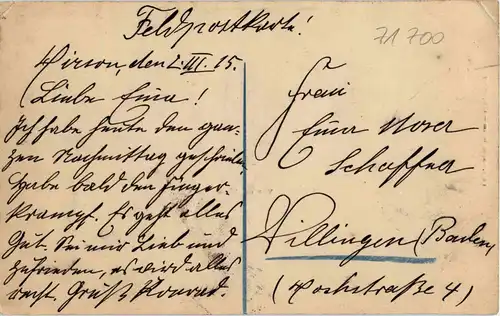 Feldpostkarte!
71700
Hirson, den 2. III. 15.
Liebe Emma!
Ich habe heute den gan-
zen Nachmittag geschrieben
habe bald den Finger-
krampf. Es geht alles
Gut. Sei mir Lieb und
zufrieden, es wird alles
recht. Gruß Konrad.
Frau
Emma Moser
Schaffner
Villingen (Baden)
(Kochstraße 4)